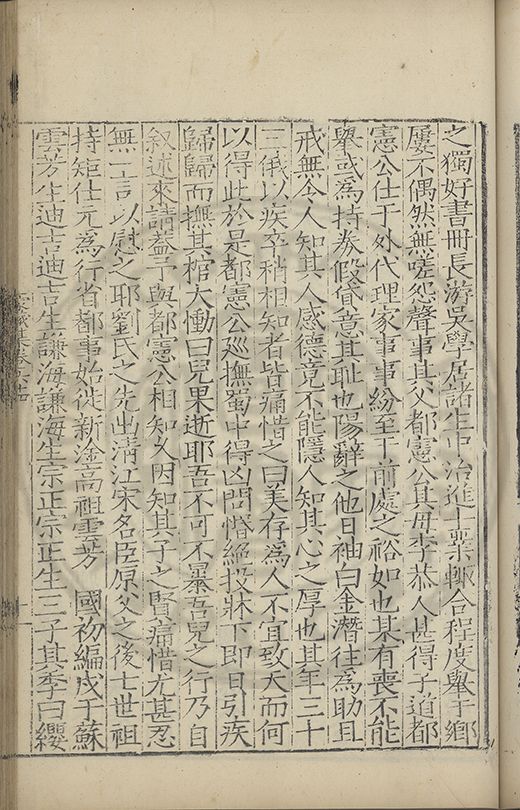 之獨好書冊長游吳學居諸生中治進士業輙合程度舉于鄉
屢不偶然無嗟怨聲事其父都憲公其母李恭人甚得子道都
憲公仕于外代理家事事紛至于前處之裕如也某有喪不能
舉或為持券假貸意其恥也陽辭之他日袖白金潛往為助且
戒無令人知其人感德竟不能隱人知其心之厚也其年三十
三俄以疾卒稍相知者皆痛惜之曰美存為人不宜致夭而何
以得此於是都憲公巡撫蜀中得凶問惛絕投牀下即日引疾
歸歸而撫其棺大慟曰兒果逝耶吾不可不暴吾兒之行乃自
叙述來請葢予與都憲公相知久因知其子之賢痛惜尤甚忍
無一言以慰之耶劉氏之先出清江宋名臣原父之後七世祖
持矩仕元為行省都事始徙新淦高祖雲芳 國初編戍于蘇
雲芳生迪吉迪吉生謙海謙海生宗正宗正生三子其季曰纓